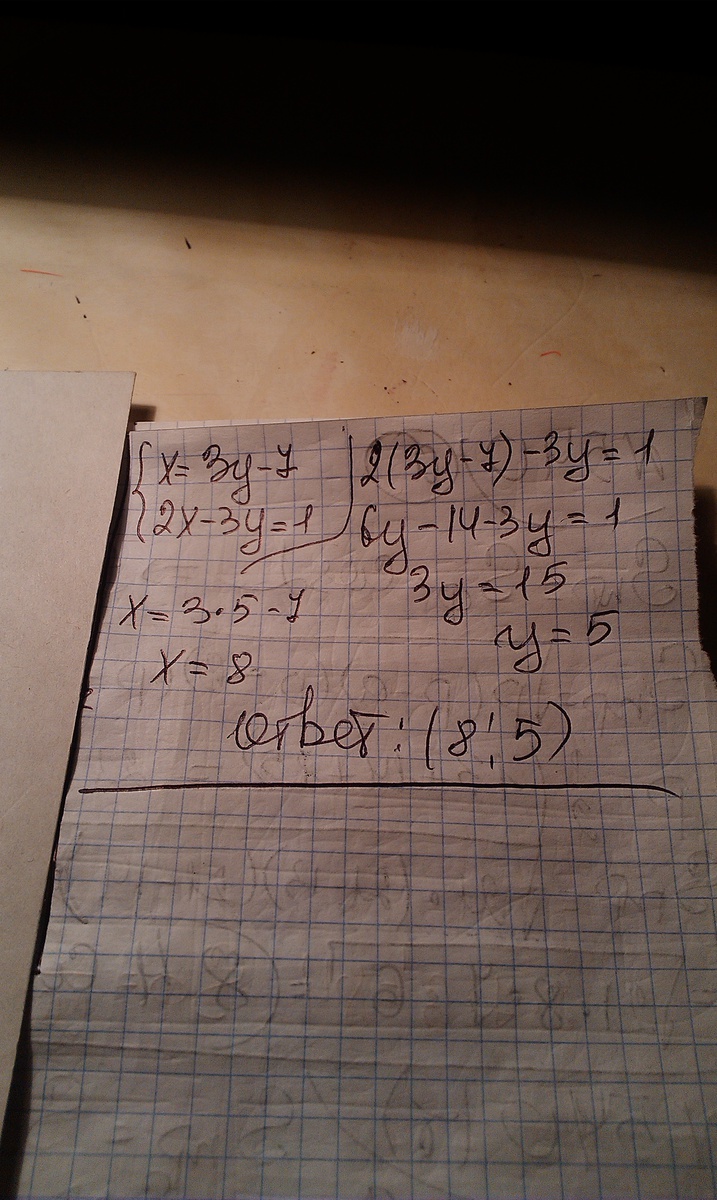 { x = 3y - 7
2x - 3y = 1
x = 3 · 5 - 7
x = 8
2(3y - 7) - 3y = 1
6y - 14 - 3y = 1
3y = 15
y = 5
Ответ: (8; 5)